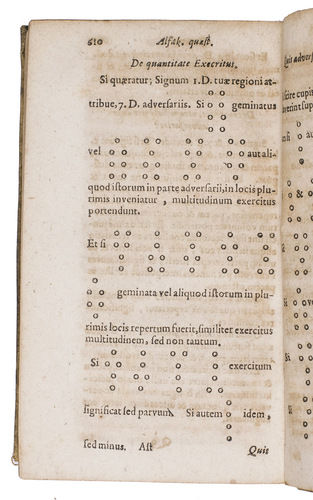 610 Alfak. quæst.
De quantitate Exercitus.
Si quæratur; Signum 1. D. tuæ regioni at-
tribue, 7. D. adversariis. Si geminatus
vel aut ali-
quod istorum in parte adversarii, in locis plu-
rimis inveniatur, multitudinem exercitus
portendunt.
Et si
geminata vel aliquod istorum in plu-
rimis locis repertum fuerit, similiter exercitus
multitudinem, sed non tantum.
Si exercitum
significat sed parvum Si autem idem,
sed minus. Ast Quis